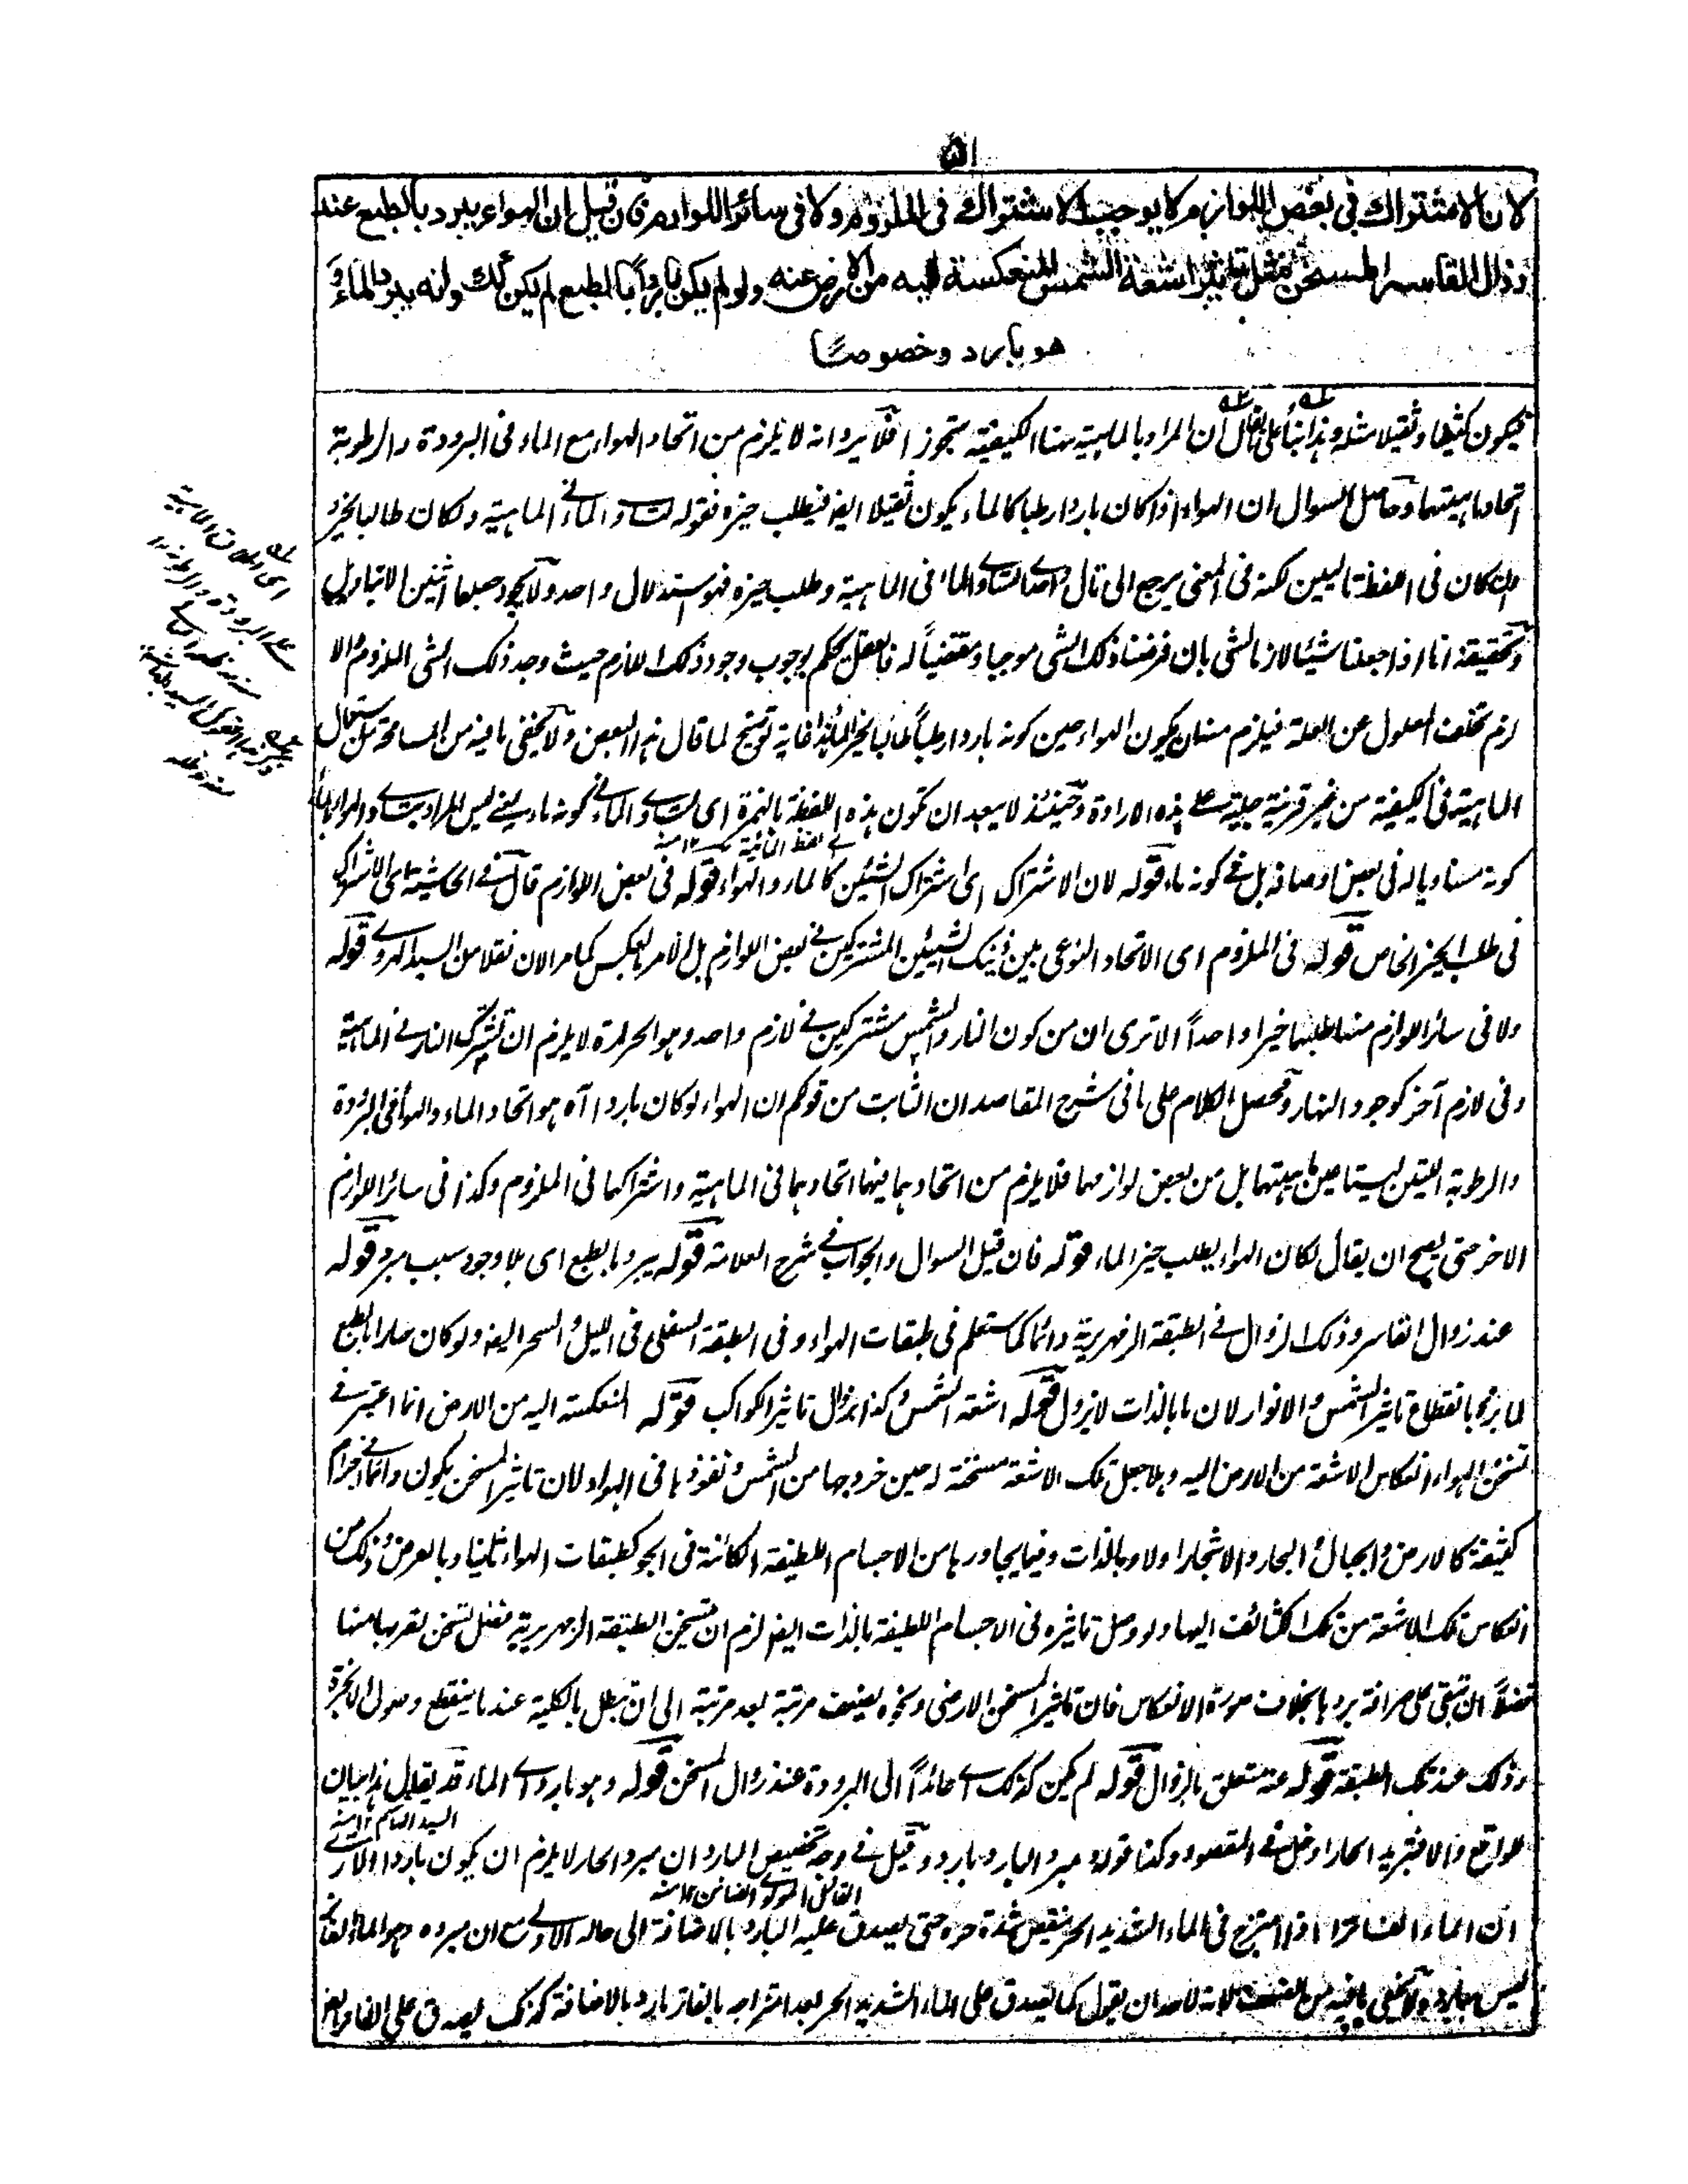 ٥١
لان الاشتراك فى بعض اللوازم لا يوجب الاشتراك فى الملزوم ولا فى سائر اللوازم فان قيل ان الهواء يبرد بالطبع عند
زوال القاسر المسخن مثل تاثير اشعة الشمس المنعكسة اليه من الارض عنه ولو لم يكن باردا بالطبع لم يكن كذلك وانه يبرد الماء و
هو بارد وخصوصًا
فيكون كثيفا وثقيلا مثله وهذا بناء على ان يقال ان المراد بالماهية ههنا الكيفية بتجوز فلا يرد انه لا يلزم من اتحاد الهواء مع الماء فى البرودة والرطوبة
اتحاد ماهيتهما وحاصل السوال ان الهواء اذا كان باردا رطبا كالماء يكون ثقيلا ايضا فيطلب حيزه فقوله لساوى الماء فى الماهية ولكان طالبا لحيزه
وان كان فى اللفظ تاليين لكنه فى المعنى يرجع الى تال واحد اى لساوى الماء فى الماهية وطلب حيزه فهو استدلال واحد ولا يجوز جعلها اثنين الا بتاويل
وتحقيقه انا اذا جعلنا شيئا لازما لشى بان فرضنا ذلك الشى موجبا ومقتضياً له فالعقل يحكم بوجوب وجود ذلك اللازم حيث وجد ذلك الشى الملزوم والا
لزم تخلف المعلول عن العلة فيلزم منه ان يكون الهواء حين كونه باردا رطباً طالبا لحيز الماء هذا غاية توضيح لما قال هذا البعض ولا يخفى ما فيه من المسامحة من استعمال
الماهية فى الكيفية من غير قرينة جلية على هذه الارادة وحينئذ لا يبعد ان تكون هذه اللفظة بالهمزة اى لساوى الماء فى كونه ماء يعنى ليس المراد بتساوى الهواء بالماء
فى لفظ المائية ١٢ منه
كونه مساويا له فى بعض اوصافه بل فى كونه ماء قوله لان الاشتراك اى اشتراك الشيئين كالماء والهواء قوله فى بعض اللوازم قال فى الحاشية اى الاشتراك
فى طلب الحيز الخاص قوله فى الملزوم اى الاتحاد النوعى بين ذينك الشيئين المشتركين فى بعض اللوازم بل الامر بالعكس كما مر الان نقلا من السيد الهروى قوله
ولا فى سائر اللوازم منها طلبها حيزا واحداً الا ترى ان من كون النار والشمس مشتركين فى لازم واحد وهو الحرارة لا يلزم ان تشترك النار فى الماهية
وفى لازم آخر كوجود النهار ومحصل الكلام على ما فى شرح المقاصد ان الثابت من قولكم ان الهواء لو كان باردا آه هو اتحاد الماء والهواء فى البرودة
والرطوبة اللتين ليستا عين ماهيتهما بل من بعض لوازمهما فلا يلزم من اتحادهما فيها اتحادهما فى الماهية واشتراكهما فى الملزوم وكذا فى سائر اللوازم
الاخر حتى يصح ان يقال لكان الهواء يطلب حيز الماء قوله فان قيل السوال والجواب فى شرح العلامة قوله يبرد بالطبع اى بلا وجود سبب مبرد قوله
عند زوال القاسر وذلك الزوال فى الطبقة الزمهريرية دائما كما ستعلم فى طبقات الهواء وفى الطبقة السفلى فى الليل والسحر ايضا ولو كان حارا بالطبع
لما برد بانقطاع تاثير الشمس والانوار لان ما بالذات لا يزول قوله اشعة الشمس وكذا بزوال تاثير الكواكب قوله المنعكسة اليه من الارض انما اعتبر فى
تسخن الهواء انعكاس الاشعة من الارض اليه ولم يجعل تلك الاشعة مسخنة له حين خروجها من الشمس ونفوذها فى الهواء لان تاثير المسخن يكون دائما فى اجرام
كثيفة كالارض والجبال والبحار والاشجار اولا وبالذات وفيما يجاورها من الاجسام اللطيفة الكائنة فى الجو كطبقات الهواء ثانيا وبالعرض وذلك من
انعكاس تلك الاشعة من تلك الكثائف اليها ولو وصل تاثيره فى الاجسام اللطيفة بالذات ايضا لزم ان تسخن الطبقة الزمهريرية بفضل تسخن لقربها منها
فضلاً ان تبقى على صرافة بردها بخلاف صورة الانعكاس فان تاثير المسخن الارضى ونحوه يضعف مرتبة بعد مرتبة الى ان يبطل بالكلية عند ما ينقطع وصول الابخرة
وذلك عند تلك الطبقة قوله عنه متعلق بالزوال قوله لم يكن كذلك اى عائداً الى البرودة عند زوال المسخن قوله وهو بارد اى الماء قد يقال هذا بيان
السيد القاسم ١٢ منه
للواقع والا فتبريد الحار ادخل فى المقصود وكذا قوله مبرد البارد بارد وقيل فى وجه تخصيص البارد ان مبرد الحار لا يلزم ان يكون باردا الا ترى
القائل المولوى الضامن ١٢ منه
ان الماء الفاتر اذا امتزج فى الماء الشديد الحر ينقص شدة حره حتى يصدق عليه البارد بالاضافة الى حاله الاولى مع ان مبرده وهو الماء الفاتر
ليس ببارد ولا يخفى ما فيه من الضعف لانه لاحد ان يقول كما يصدق على الماء الشديد الحر بعد امتزاجه بالفاتر بارد بالاضافة كذلك يصدق على الفاتر ايضا